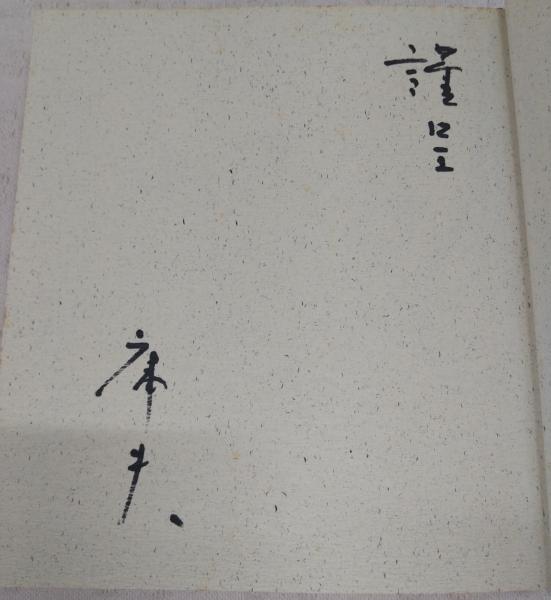 謹呈
康夫